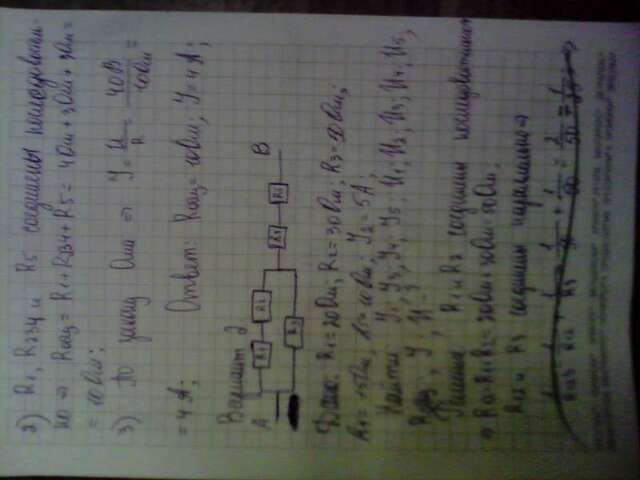 2) R1, R234 и R5 соединены последователь-
но ⇒ Rобщ = R1 + R234 + R5 = 4 Ом + 3 Ом + 3 Ом =
= 10 Ом;
3) По закону Ома ⇒ I = U/R = 40В/10Ом =
= 4 А; Ответ: Rобщ = 10 Ом; I = 4 А;
Вариант 2
A B
Дано: R1 = 20 Ом; R2 = 30 Ом; R3 = 50 Ом;
R4 = 15 Ом; R5 = 10 Ом; I2 = 5 А;
Найти: I1, I3, I4, I5; U1, U2, U3, U4, U5,
Rобщ, I, U - ?
Решение: R1 и R2 соединены последовательно
⇒ R12 = R1 + R2 = 20 Ом + 30 Ом = 50 Ом;
R12 и R3 соединены параллельно ⇒